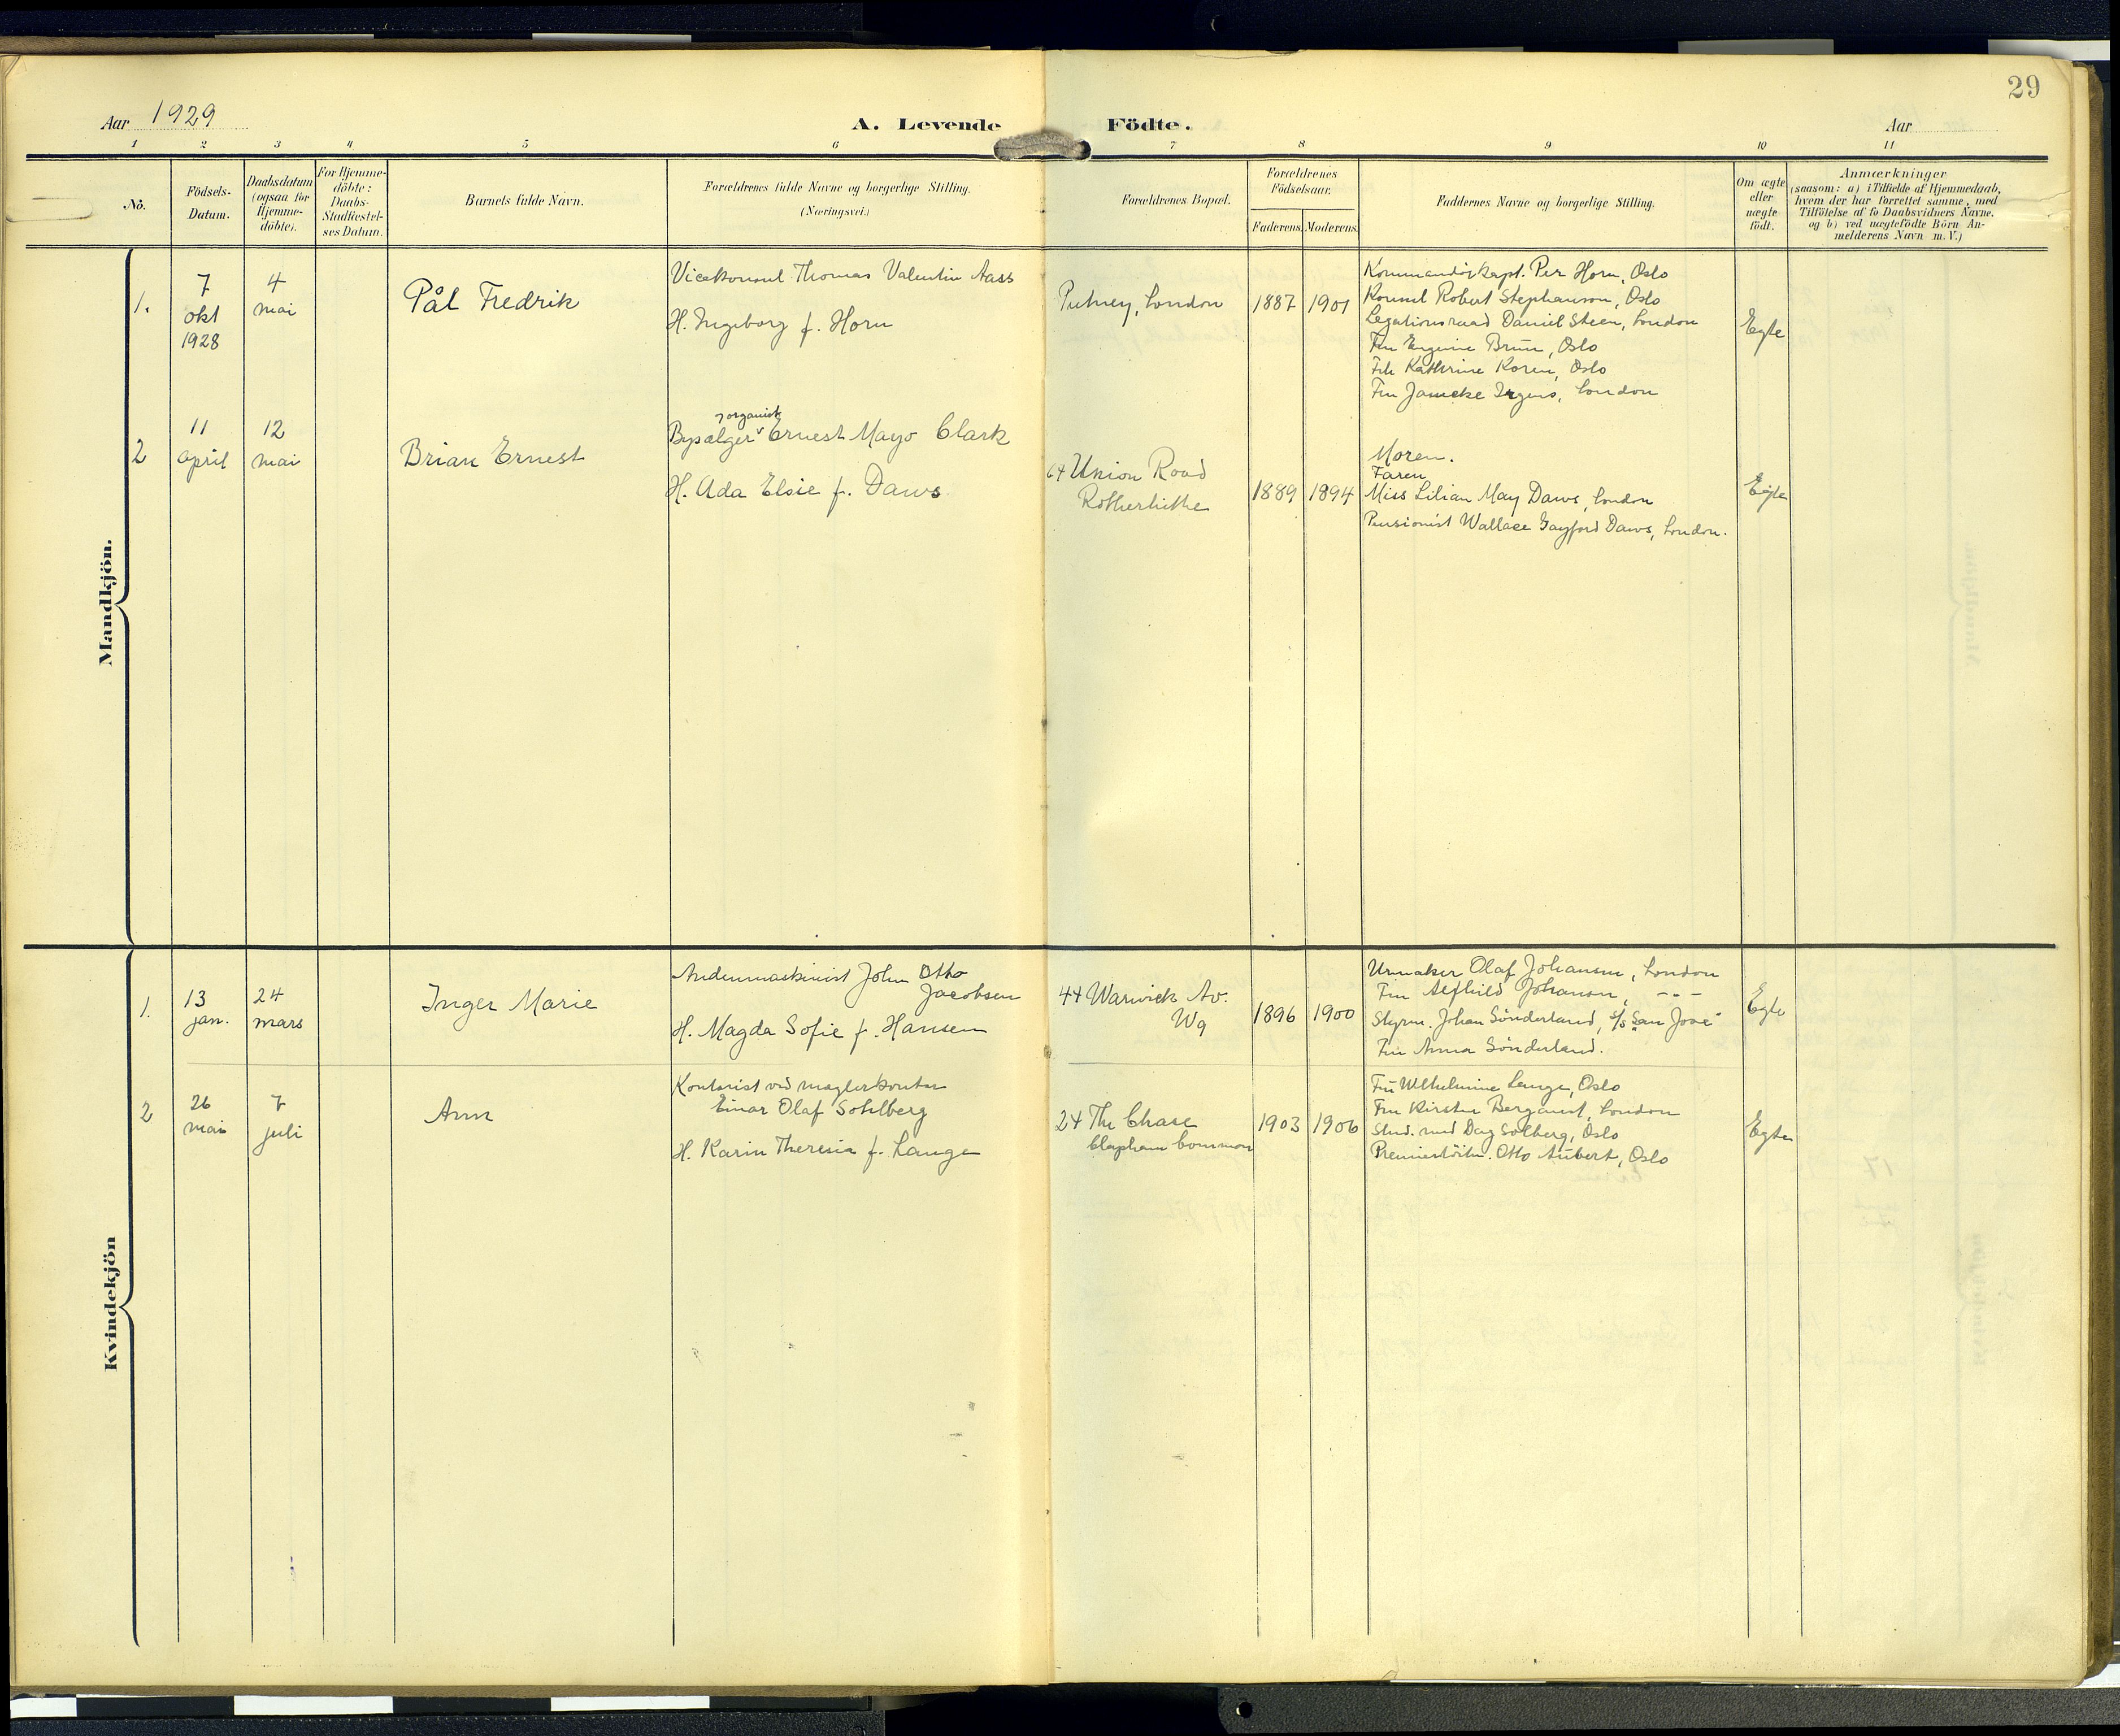 29
Aar 1929
A. Levende Födte.
Aar
1 2 3 4 5 6 7 8 9 10 11
No.
Födsels-
Datum.
Daabsdatum
(ogsaa for
Hjemme-
döbte).
For Hjemme-
döbte:
Daabs-
Stadfæstel-
ses Datum.
Barnets fulde Navn.
Forældrenes fulde Navne og borgerlige Stilling.
(Næringsvei.)
Forældrenes Bopæl.
Forældrenes
Födselsaar.
Faderens. Moderens.
Faddernes Navne og borgerlige Stilling.
Om ægte
eller
uægte
födt.
Anmærkninger
(saasom: a) i Tilfælde af Hjemmedaab,
hvem der har forrettet samme, med
Tilföielse af to Daabsvidners Navne,
og b) ved uægtefödte Börn An-
melderens Navn m. V.)
Mandkjön.
1.
7
okt
1928
4
mai
Pål Fredrik
Vicekonsul Thomas Valentin Aass
H. Ingeborg f. Horn
Putney, London
1887
1901
Kommandörkapt. Per Horn, Oslo
Konsul Robert Stephanson, Oslo
Legationsraad Daniel Steen, London
Fru Eugenie Brun, Oslo
Frk Kathrine Koren, Oslo
Fru Janicke Irgens, London
Egte
2
11
april
12
mai
Brian Ernest
organist
Bysælger Ernest Mayo Clark
H. Ada Elsie f. Daws
64 Union Road
Rotherhithe
1889
1894
Moren.
Faren
Miss Lilian May Daws, London
Pensionist Wallace Gayford Daws, London.
Egte
Kvindekjön
1.
13
jan.
24
mars
Inger Marie
Andenmaskinist John Otto
Jacobsen
H. Magda Sofie f. Hansen
44 Warwick Av.
W9
1896
1900
Urmaker Olaf Johansen, London
Fru Alfhild Johansen, - - -
Styrm. Johan Sönderland, s/s "San José"
Fru Anna Sönderland.
Egte
2
26
mai
7
juli
Ann
Kontorist ved maglerkontor
Einar Olaf Sohlberg
H. Karin Theresia f. Lange
24 The Chase
Clapham Common
1903
1906
Fru Wilhelmine Lange, Oslo
Fru Kirsten Berganst, London
Stud. med Dag Solberg, Oslo
Premierlöitn. Otto Aubert, Oslo
Egte